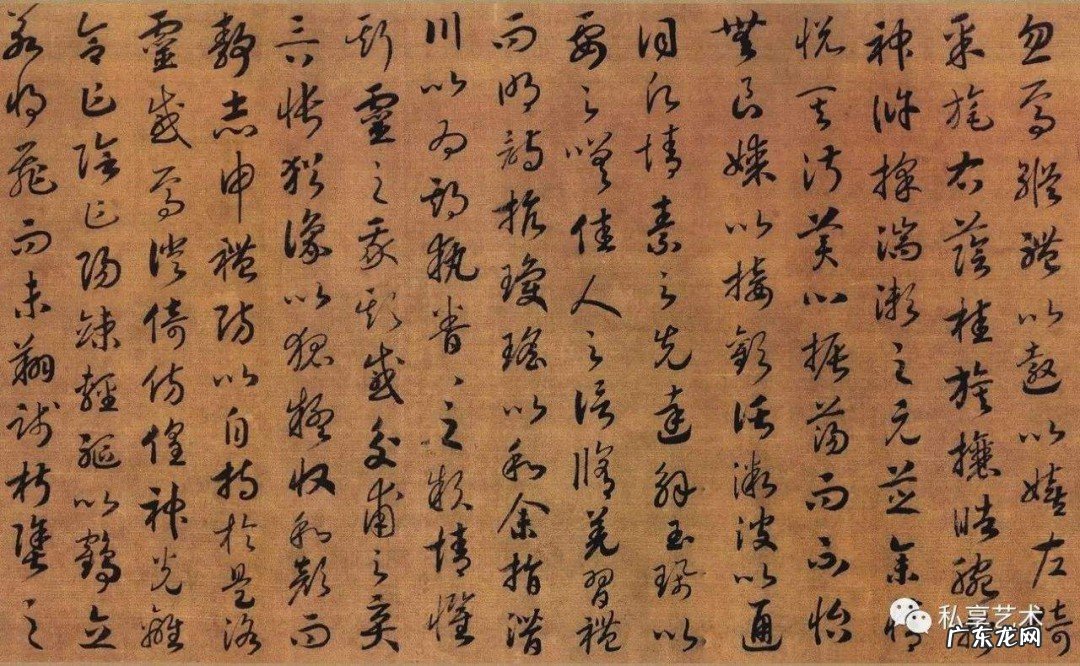 忽焉縱體以遨以嬉左倚
采旄右蔭桂旗攘皓腕於
神滸採湍瀨之元芝余情
悅其淑美心振蕩而不怡
無良媒以接歡託微波以通
詞願情素之先達解玉珮以
要之嗟佳人之信脩羌習禮
而明詩抗瓊瑤以和余指潛
川以為期執眷〻之款情懼
斯靈之我欺感交甫之棄
言悵猶豫以狐疑收和顏而
靜志申禮防以自持於是洛
靈感焉徙倚傍偟神光離
合乍陰乍陽竦輕軀以鶴立
若將飛而未翔踐椒塗之
私享艺术
广东龙网